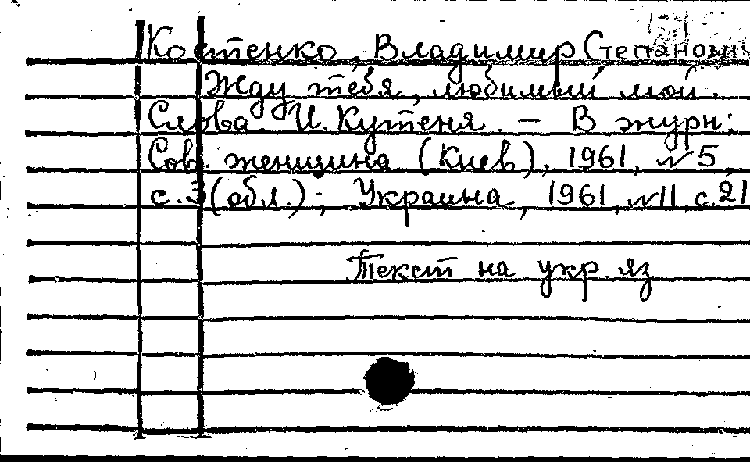 Костенко, Владимир Степанович
Жду тебя, любимый мой.
Слова И. Кутеня. — В журн:
Сов. женщина (Киев), 1961, №5,
с. 3 (обл.); Украина, 1961, №11, с. 21
Текст на укр. яз